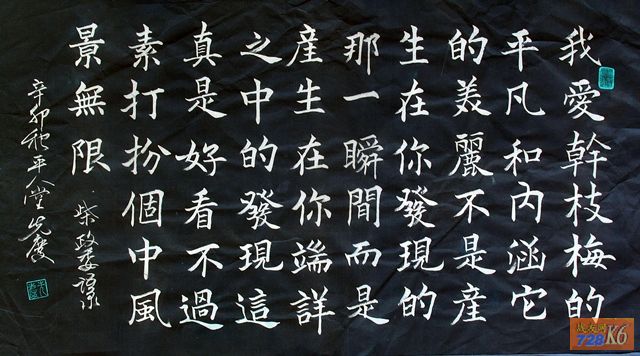 我愛幹枝梅的
平凡和內涵它
的美麗不是產
生在你發現的
那一瞬間而是
產生在你端詳
之中的發現這
真是好看不過
素打扮個中風
景無限
柴政委
辛卯秋平人堂
战友网
728K6